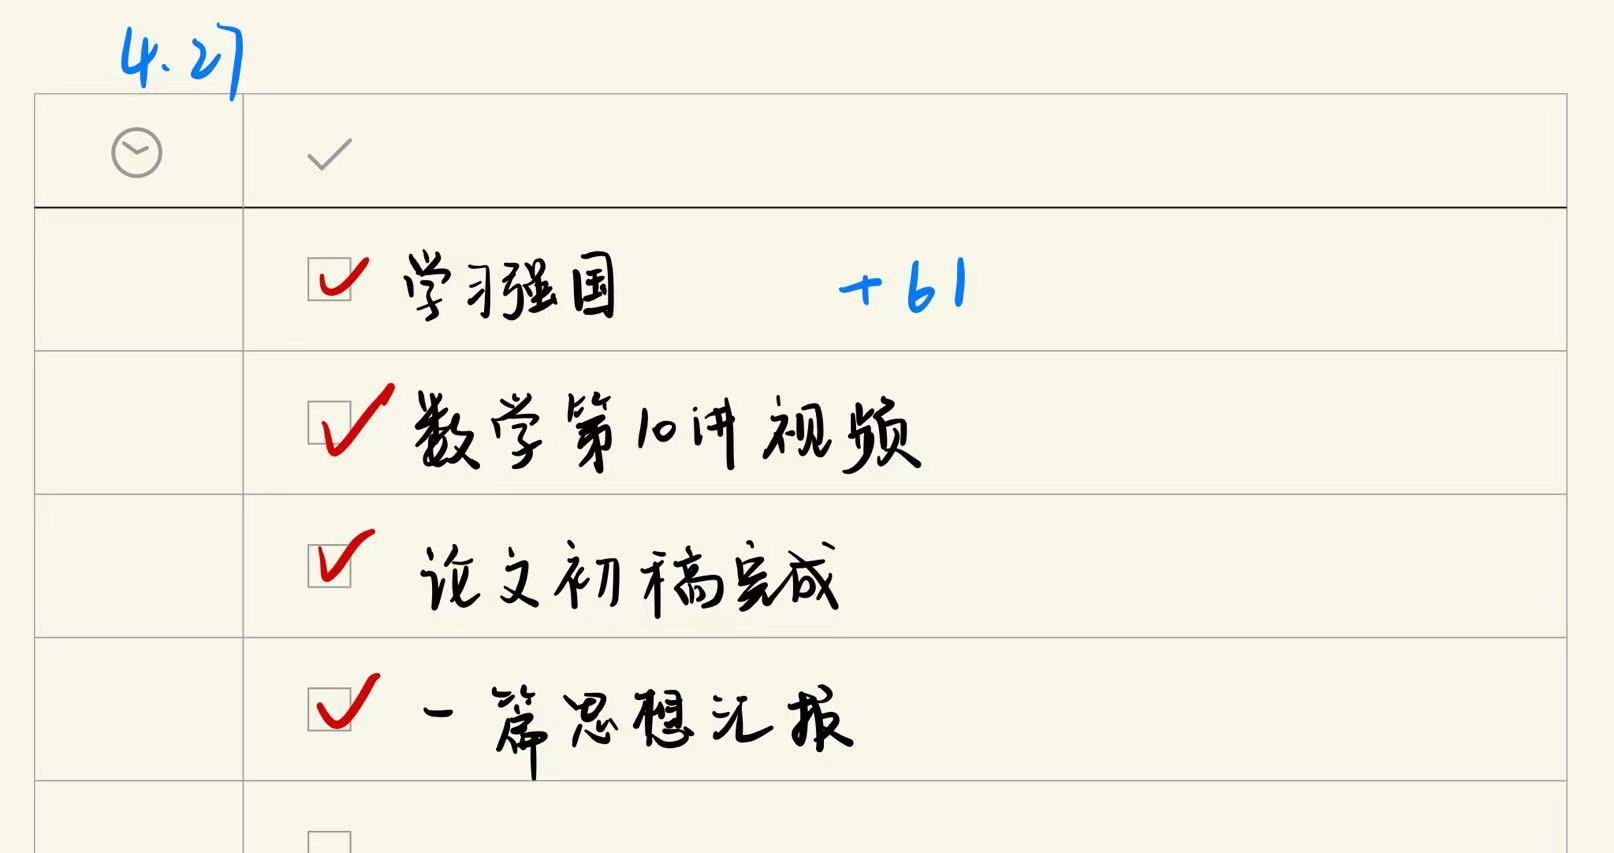 4.27
学习强国 +61
数学第10讲视频
论文初稿完成
一篇思想汇报